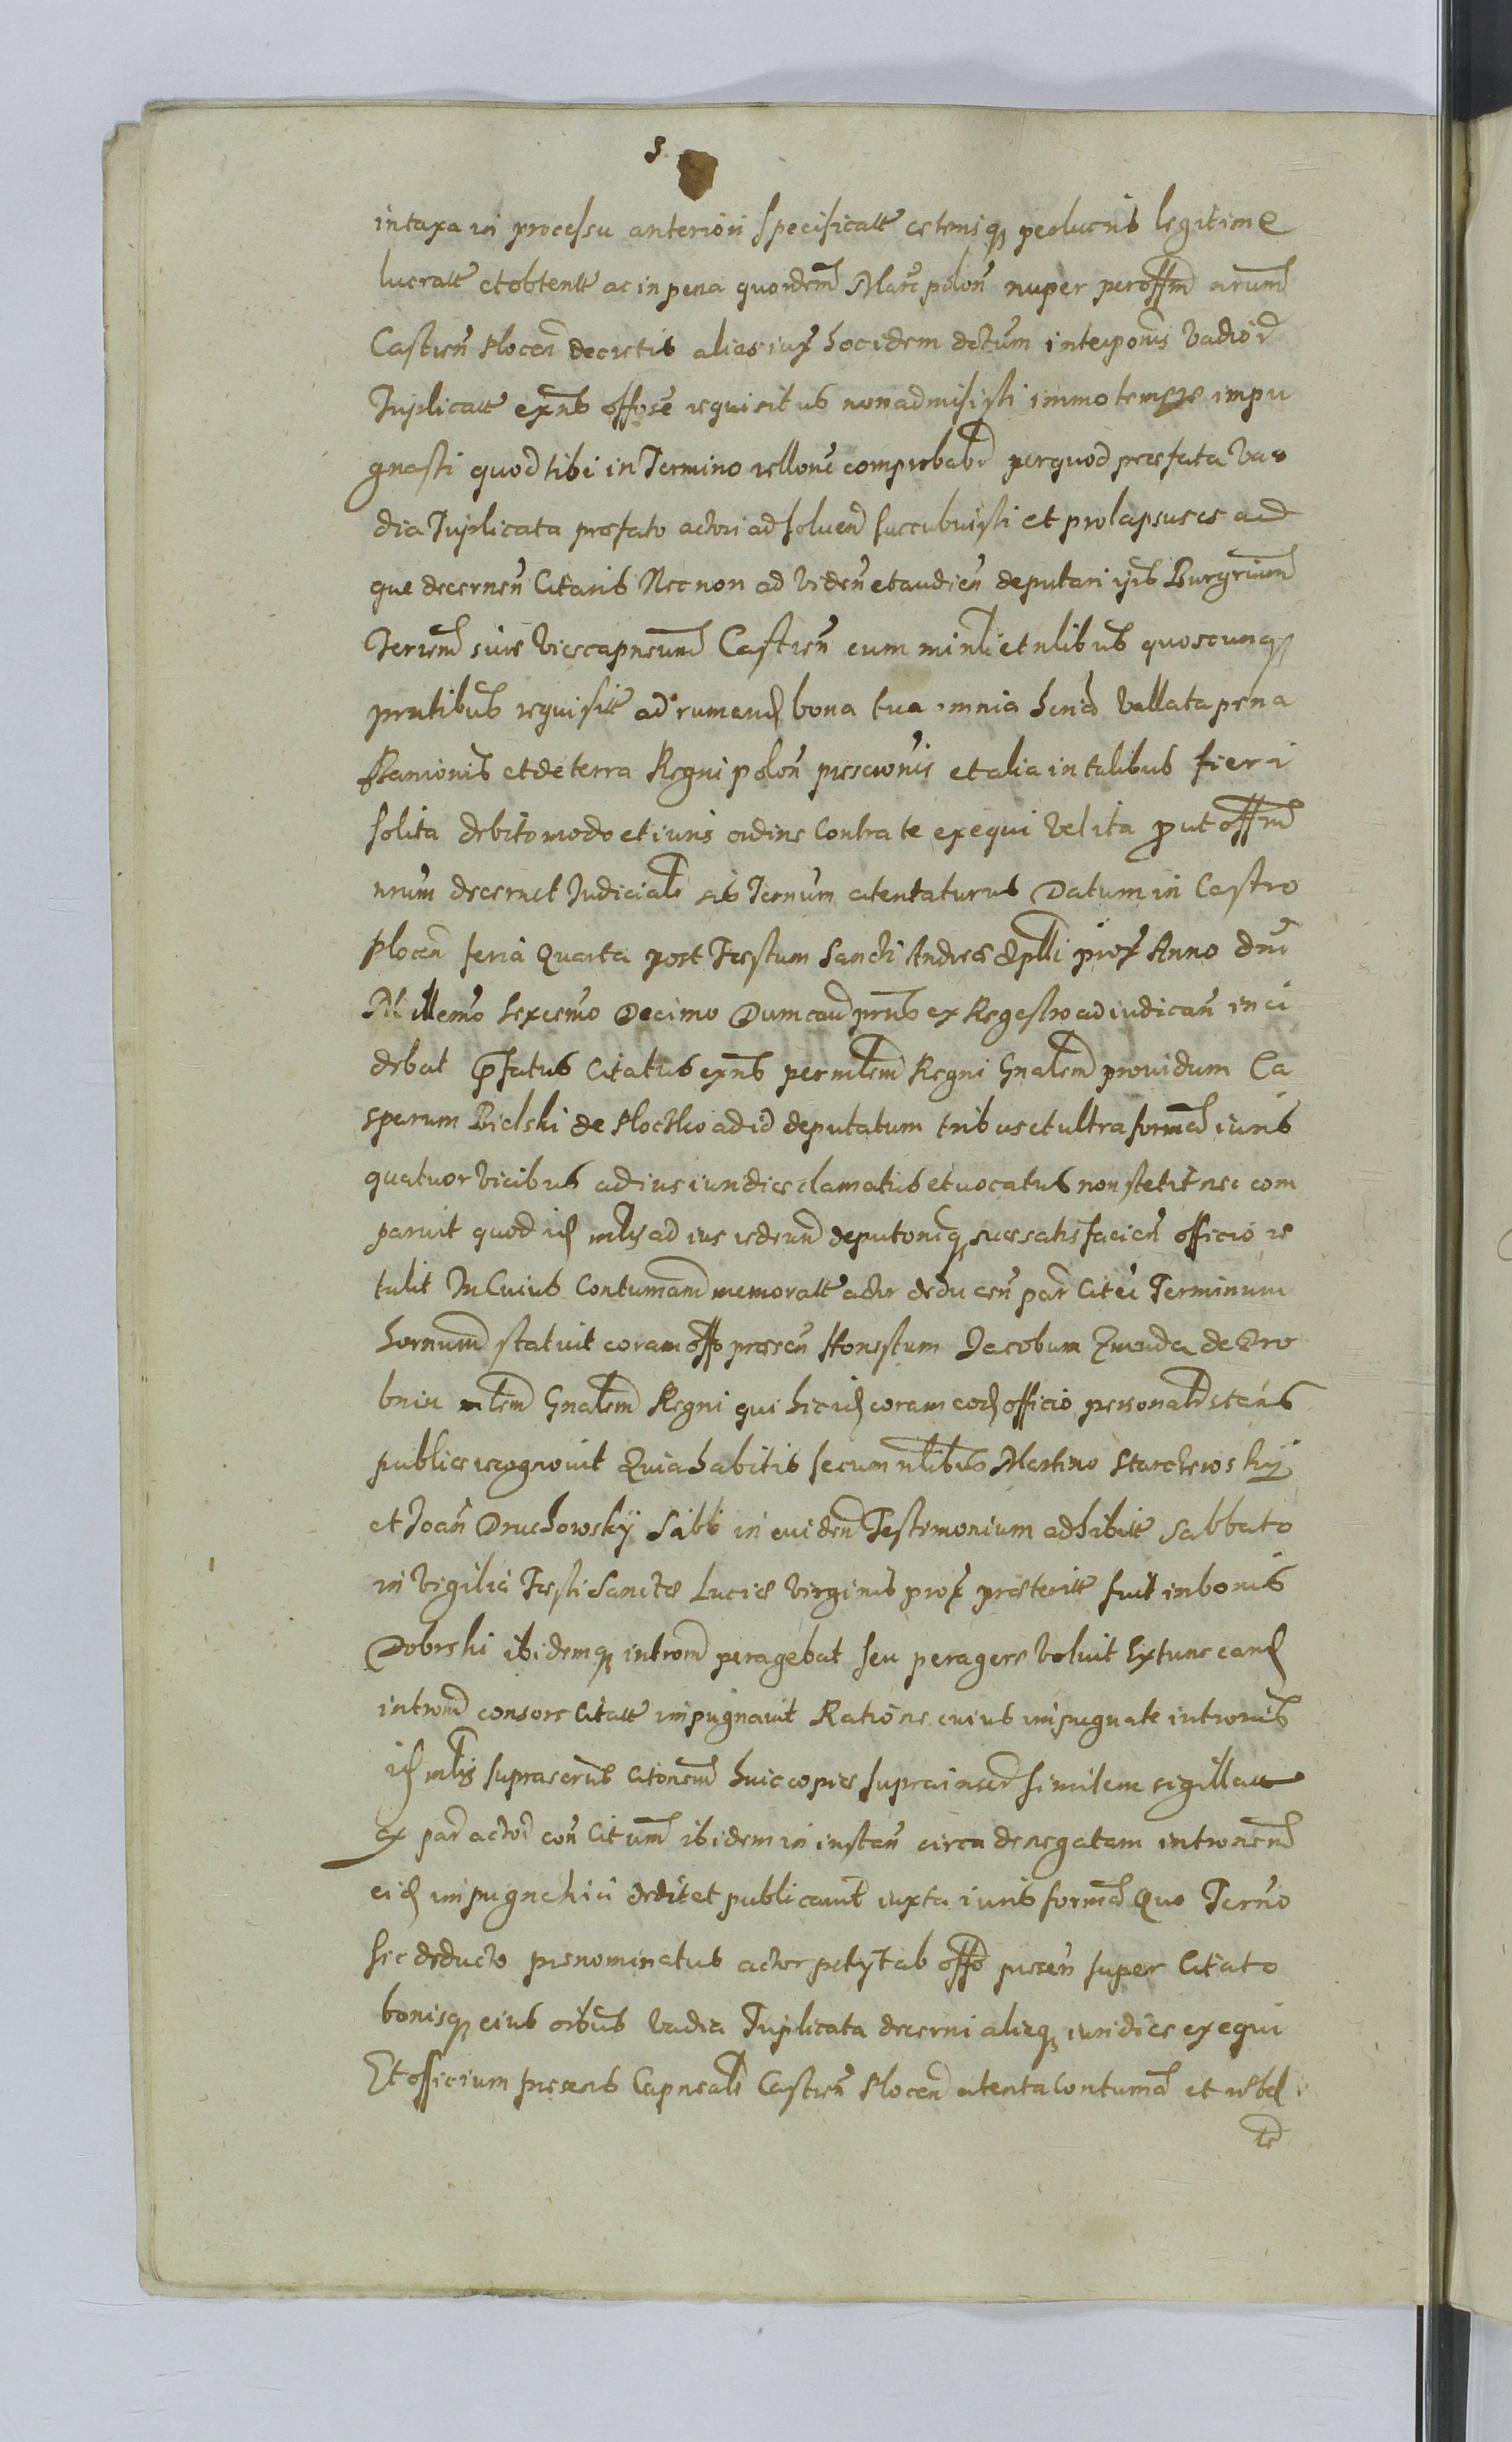 3
in taxa in processu anteriori specificatt ceterisq perlucris legitime
lucratt et obtentt ac in pena quordem Marc polon nuper per offm nrum
Castren Plocen decretis alias iux hoc idem dctum interponis vadior
Triplicatt exns offose requisitus non admisisti immo temere impu
gnasti quod tibi in Termino rellone comprobabr per quod præfata va
dia Triplicata præfato actori ad soluend succubuisti et prolapsus es ad
que decernen Citaris Nec non ad viden et audien deputari ijs Burgrium
Terrem siue Vicecapneum Castren cum minli et nlibus quoscunq
prntibus requisitt ad rumand bona tua omnia hend Vallata pena
Bannionis et de terra Regni polon proscronis et alia in talibus fieri
solita debito modo et iuris ordine Contra te exequi Vel ita prout offm
nrum decernet Judicialr sis Ternum attentaturus Datum in Castro
Plocen feria Quarta post Festum Sancti Andreæ Aplli prox Anno dni
Millemo Sexcemo Decimo Dum caud prns ex Regestro ad iudican inci
debat præfatus Citatus exns per mlem Regni Gnalem prouidum Ca
sparum Bielski de Plocko ad id deputatum tribus et ultra formed iuris
quatuor vicibus ad ius iuridice clamatus et vocatus non stetit nec com
paruit quod id mlis ad ius redeund deputoniq suæ satisfacien officio re
tulit In Cuius Contumam memoratt actor deducen par Citei Terminum
hornum statuit coram offo præsen Honestum Jacobum Zwanda de Dro
bnin mlem Gnalem Regni qui hic id coram eod officio personalr stans
publice recognouit Quia habitis secum nlibus Martino Starczewskÿ
et Joan Druchowskÿ Sibi in euiden Testimonium adhibitt Sabbato
in Vigilia Festi Sanctæ Luciæ Virginis prox præteritt fuit in bonis
Dobrski ibidemq introm peragebat seu peragere voluit Extunc eand
introm consors Citatt impugnauit Ratione cuius impugnate intronis
id mlis suprascrus Citonem huic copiæ supra insert similem sigillatt
ex par actor con Citum ibidem in instan circa denegatam intronem
eid impugnchiu dedit et publicauit iuxta iuris formed Quo Terno
sic deducto prænominatus actor petijt ab offo præsen super Citato
bonisq eius oibus Vadia Triplicata decerni aliaq iuridice exequi
Et officium præsens Capnealr Castren Plocen attenta Contumad et rebel